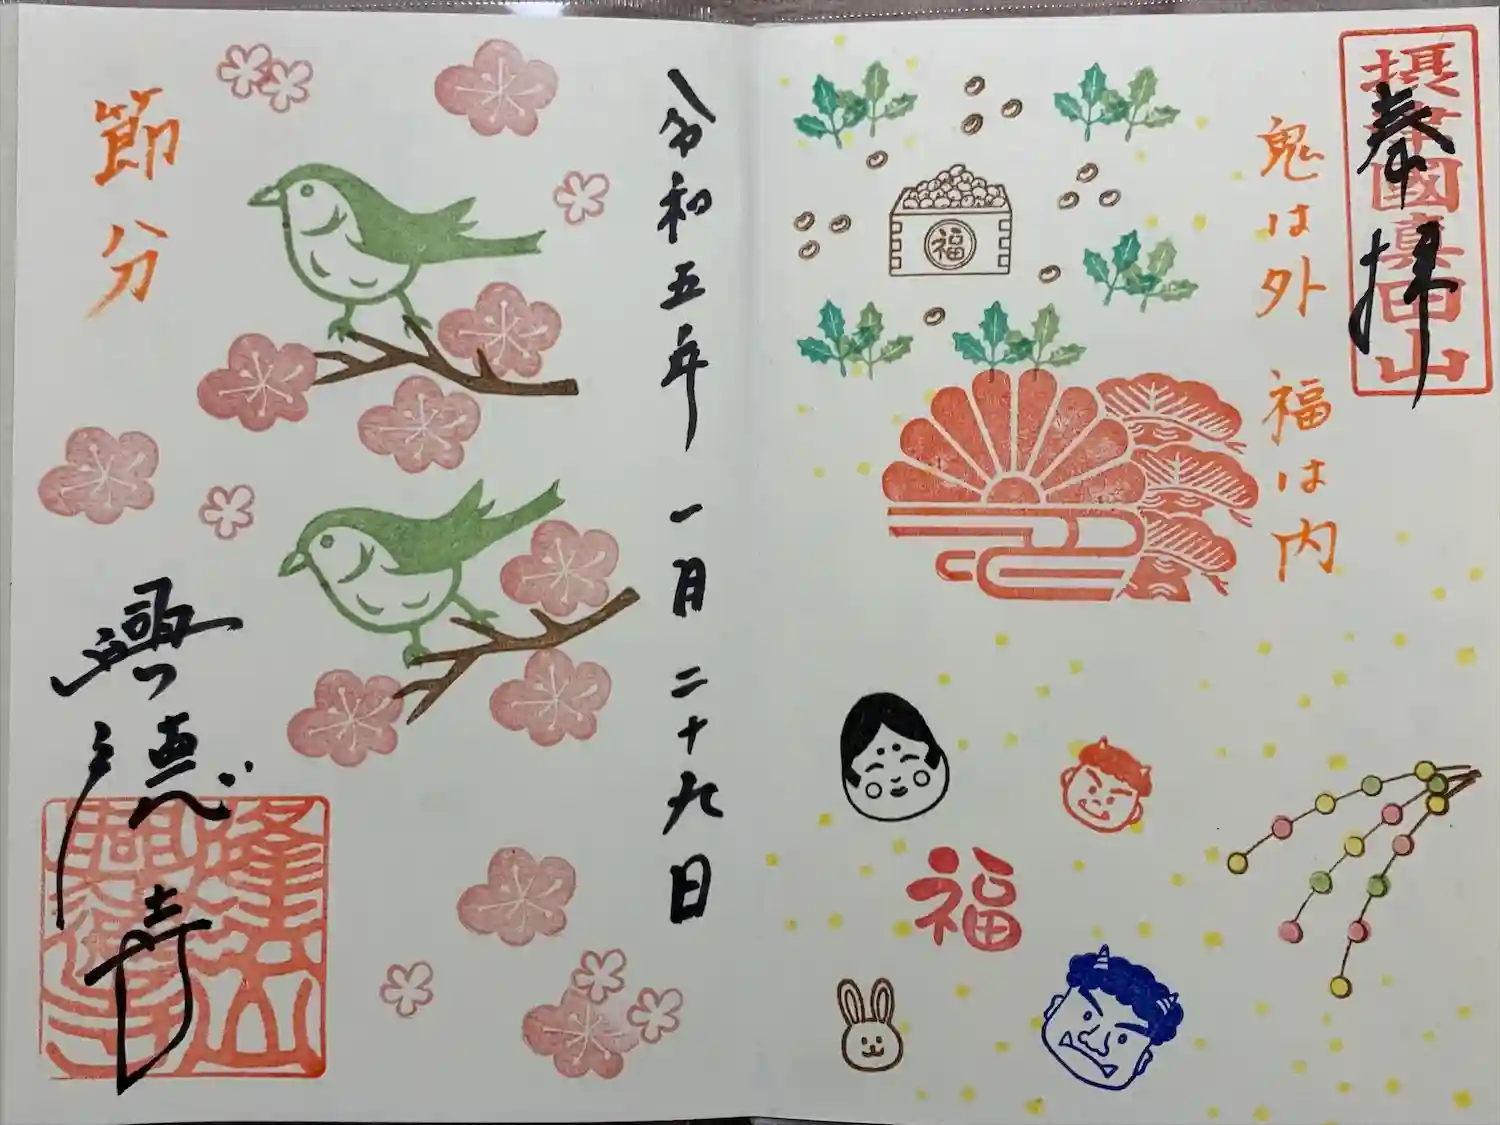 摂津國真田山
奉拝
鬼は外 福は内
福
福
令和五年 一月 二十九日
節分
興徳寺